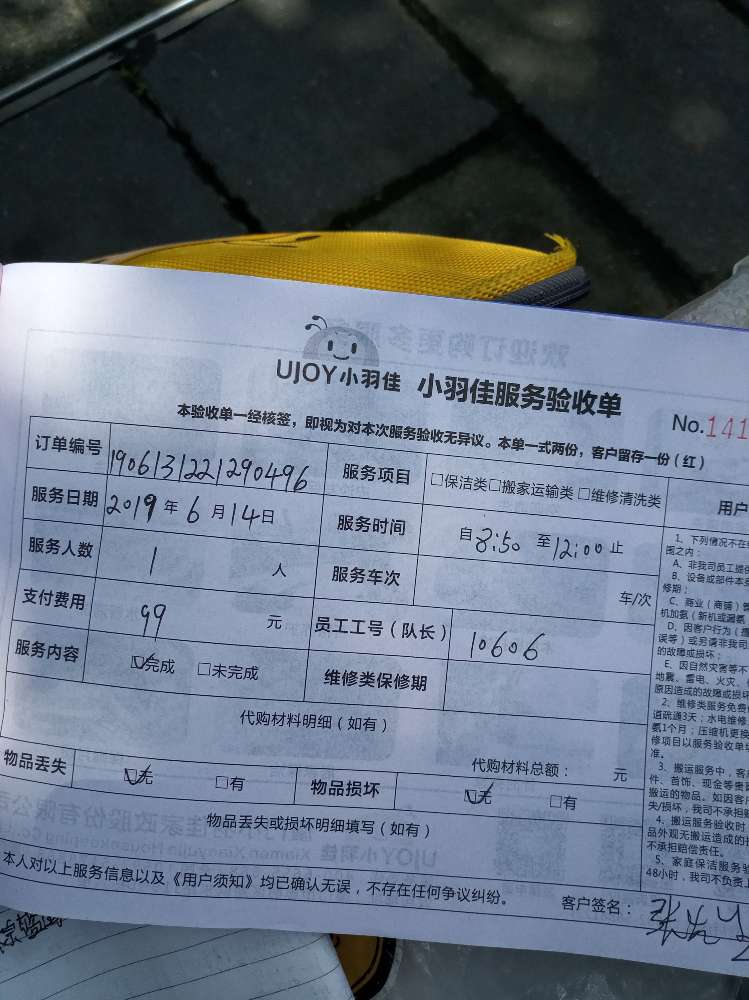 UJOY小羽佳 小羽佳服务验收单
No.141
本验收单一经核签，即视为对本次服务验收无异议。本单一式两份，客户留存一份（红）
订单编号 1906131221290496 服务项目 □保洁类□搬家运输类□维修清洗类
服务日期 2019年6月14日 服务时间 自8:50至12:00止
服务人数 1人 服务车次 车/次
支付费用 99元 员工工号（队长） 10606
服务内容 ☑完成 □未完成 维修类保修期
代购材料明细（如有）
代购材料总额： 元
物品丢失 ☑无 □有 物品损坏 ☑无 □有
物品丢失或损坏明细填写（如有）
本人对以上服务信息以及《用户须知》均已确认无误，不存在任何争议纠纷。
客户签名：
用户
1、下列情况不在
围之内：
A、非我司员工提供
B、设备或部件本
修期；
C、商业（商铺）
机加氨（新机或漏氨
D、因客户行为
误等）或另请非我司
的故障或损坏；
E、因自然灾害等不
地震、雷电、火灾、
原因造成的故障或损
2、维修类服务免费
道疏通3天；水电维修
氨1个月；压缩机更换
修项目以服务验收单
准。
3、搬运服务中，客
件、首饰、现金等贵
搬运的物品。如因客户
失/损坏，我司不承担赔
4、搬运服务验收时
品外观无搬运造成的
不承担赔偿责任。
5、家庭保洁服务
48小时，我司不负责